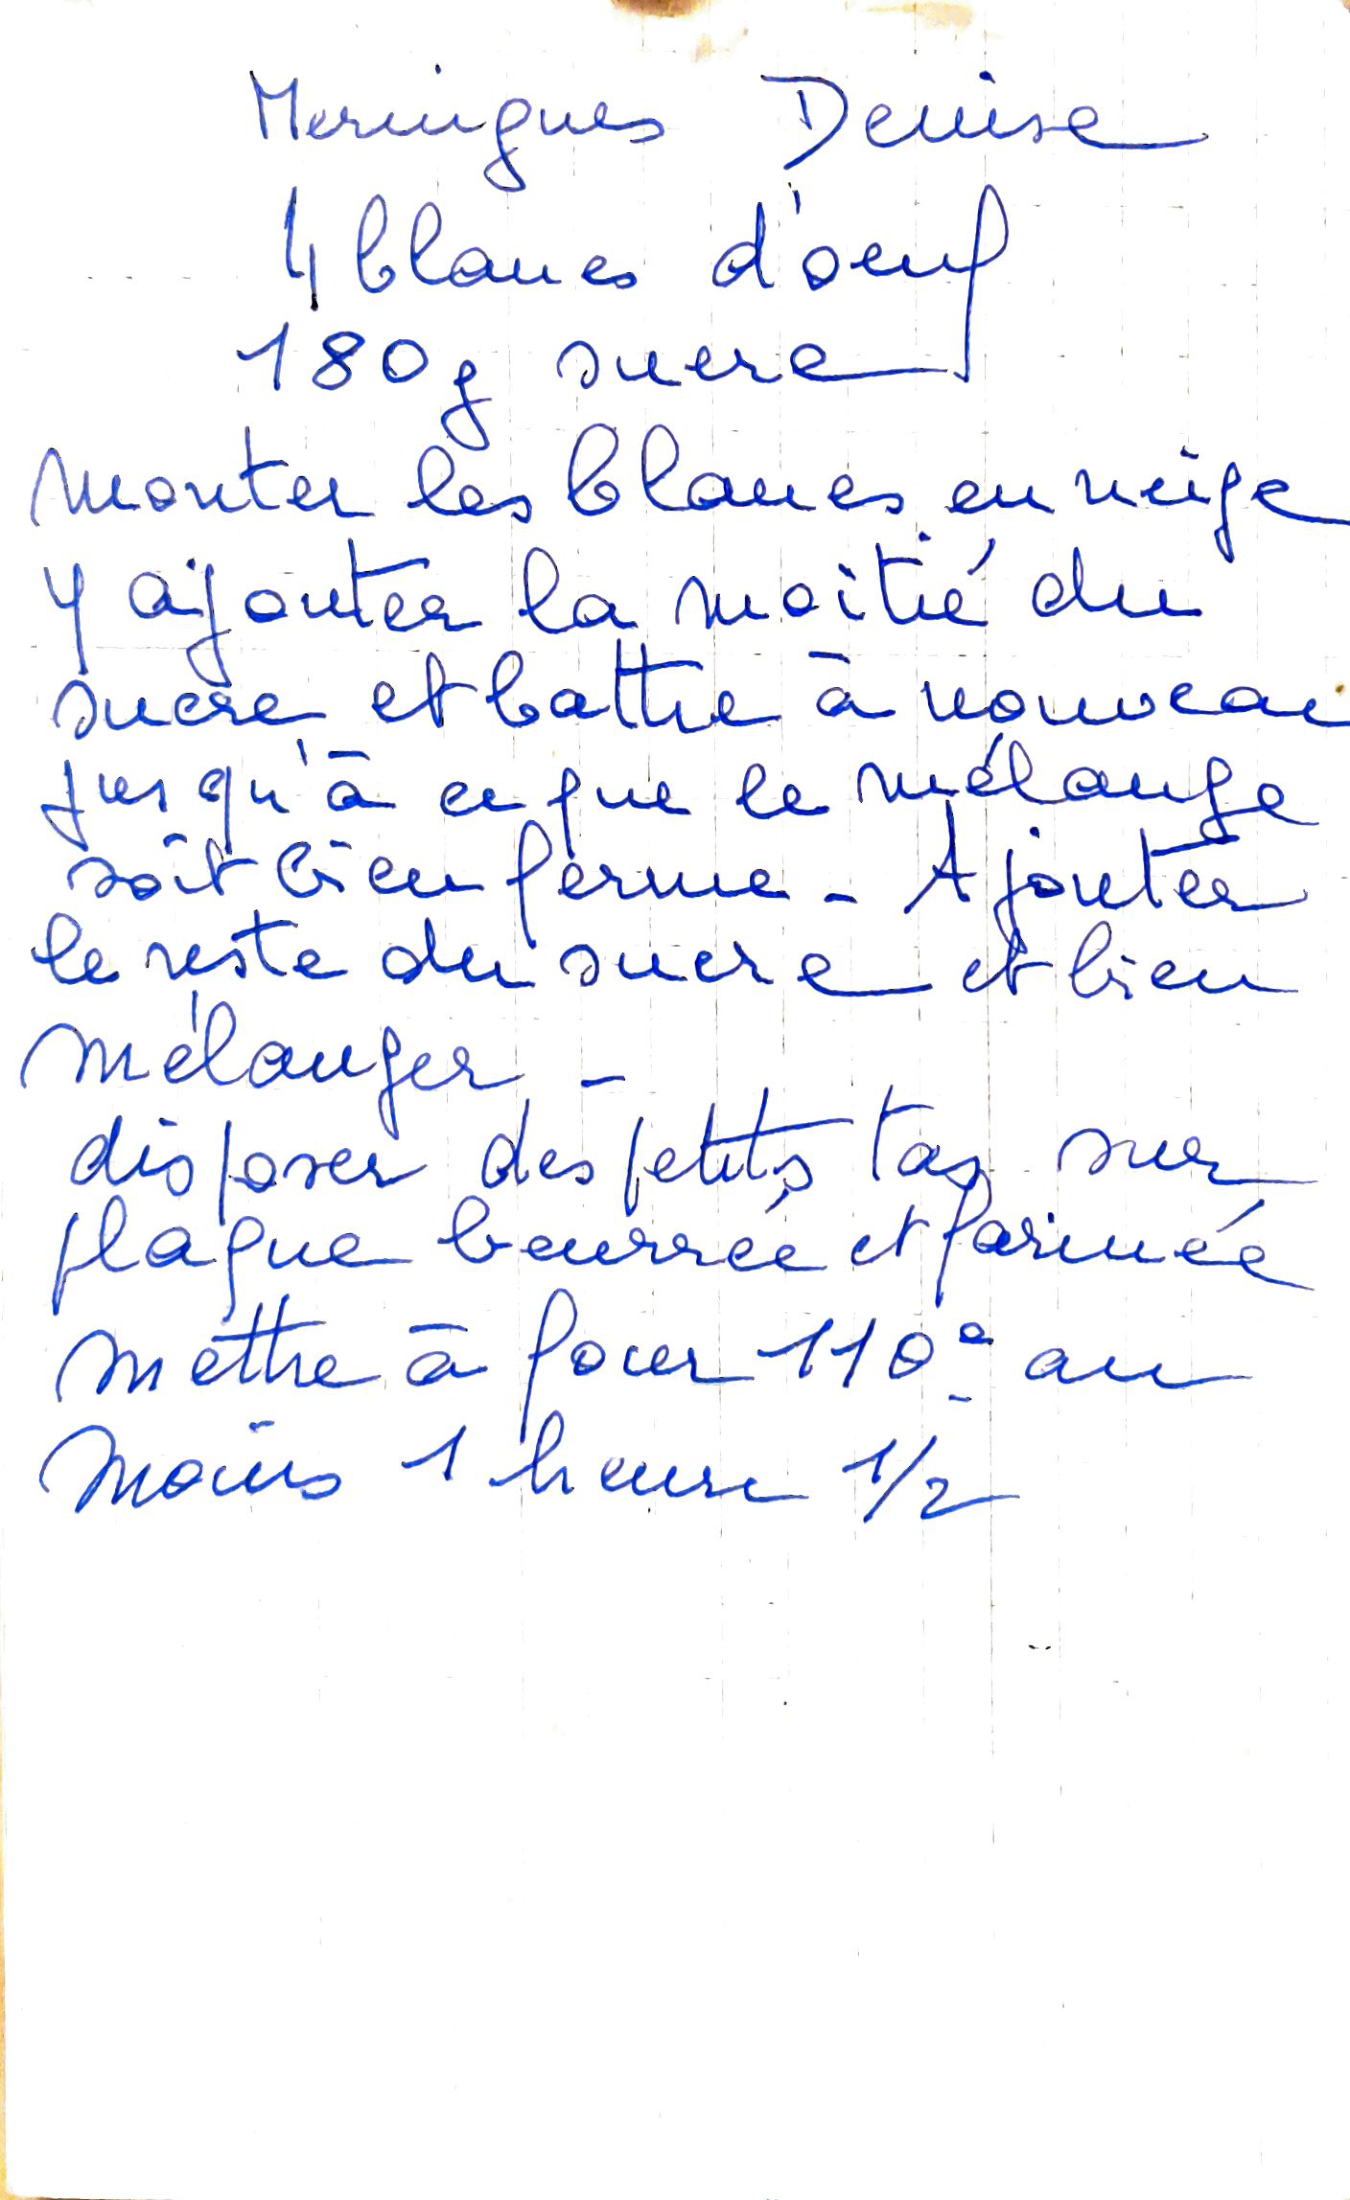 Meringues Denise
4 blancs d'oeuf
180g sucre
monter les blancs en neige
y ajouter la moitié du
sucre et battre à nouveau
jusqu'à ce que le mélange
soit bien ferme - Ajouter
le reste du sucre et bien
mélanger -
disposer des petits tas sur
plaque beurrée et farinée
mettre à four 110° au
moins 1 heure 1/2